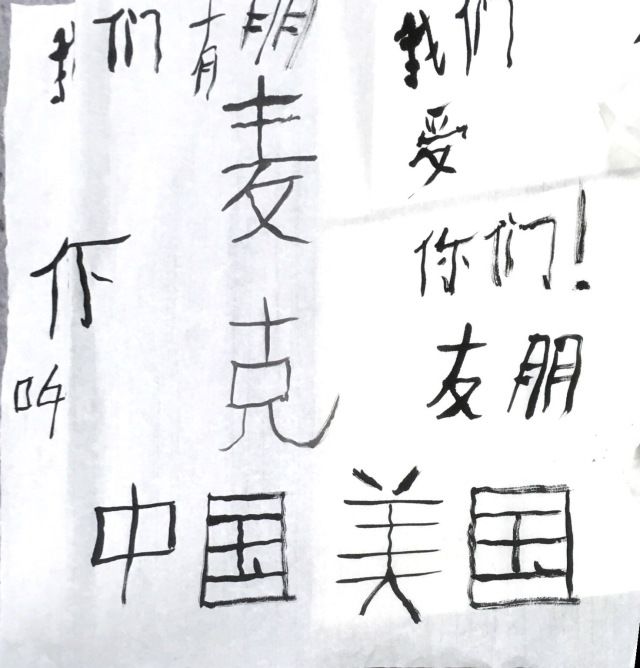 我们有朋 我们
麦 爱
你 你们!
克 友朋
叫
中国美国